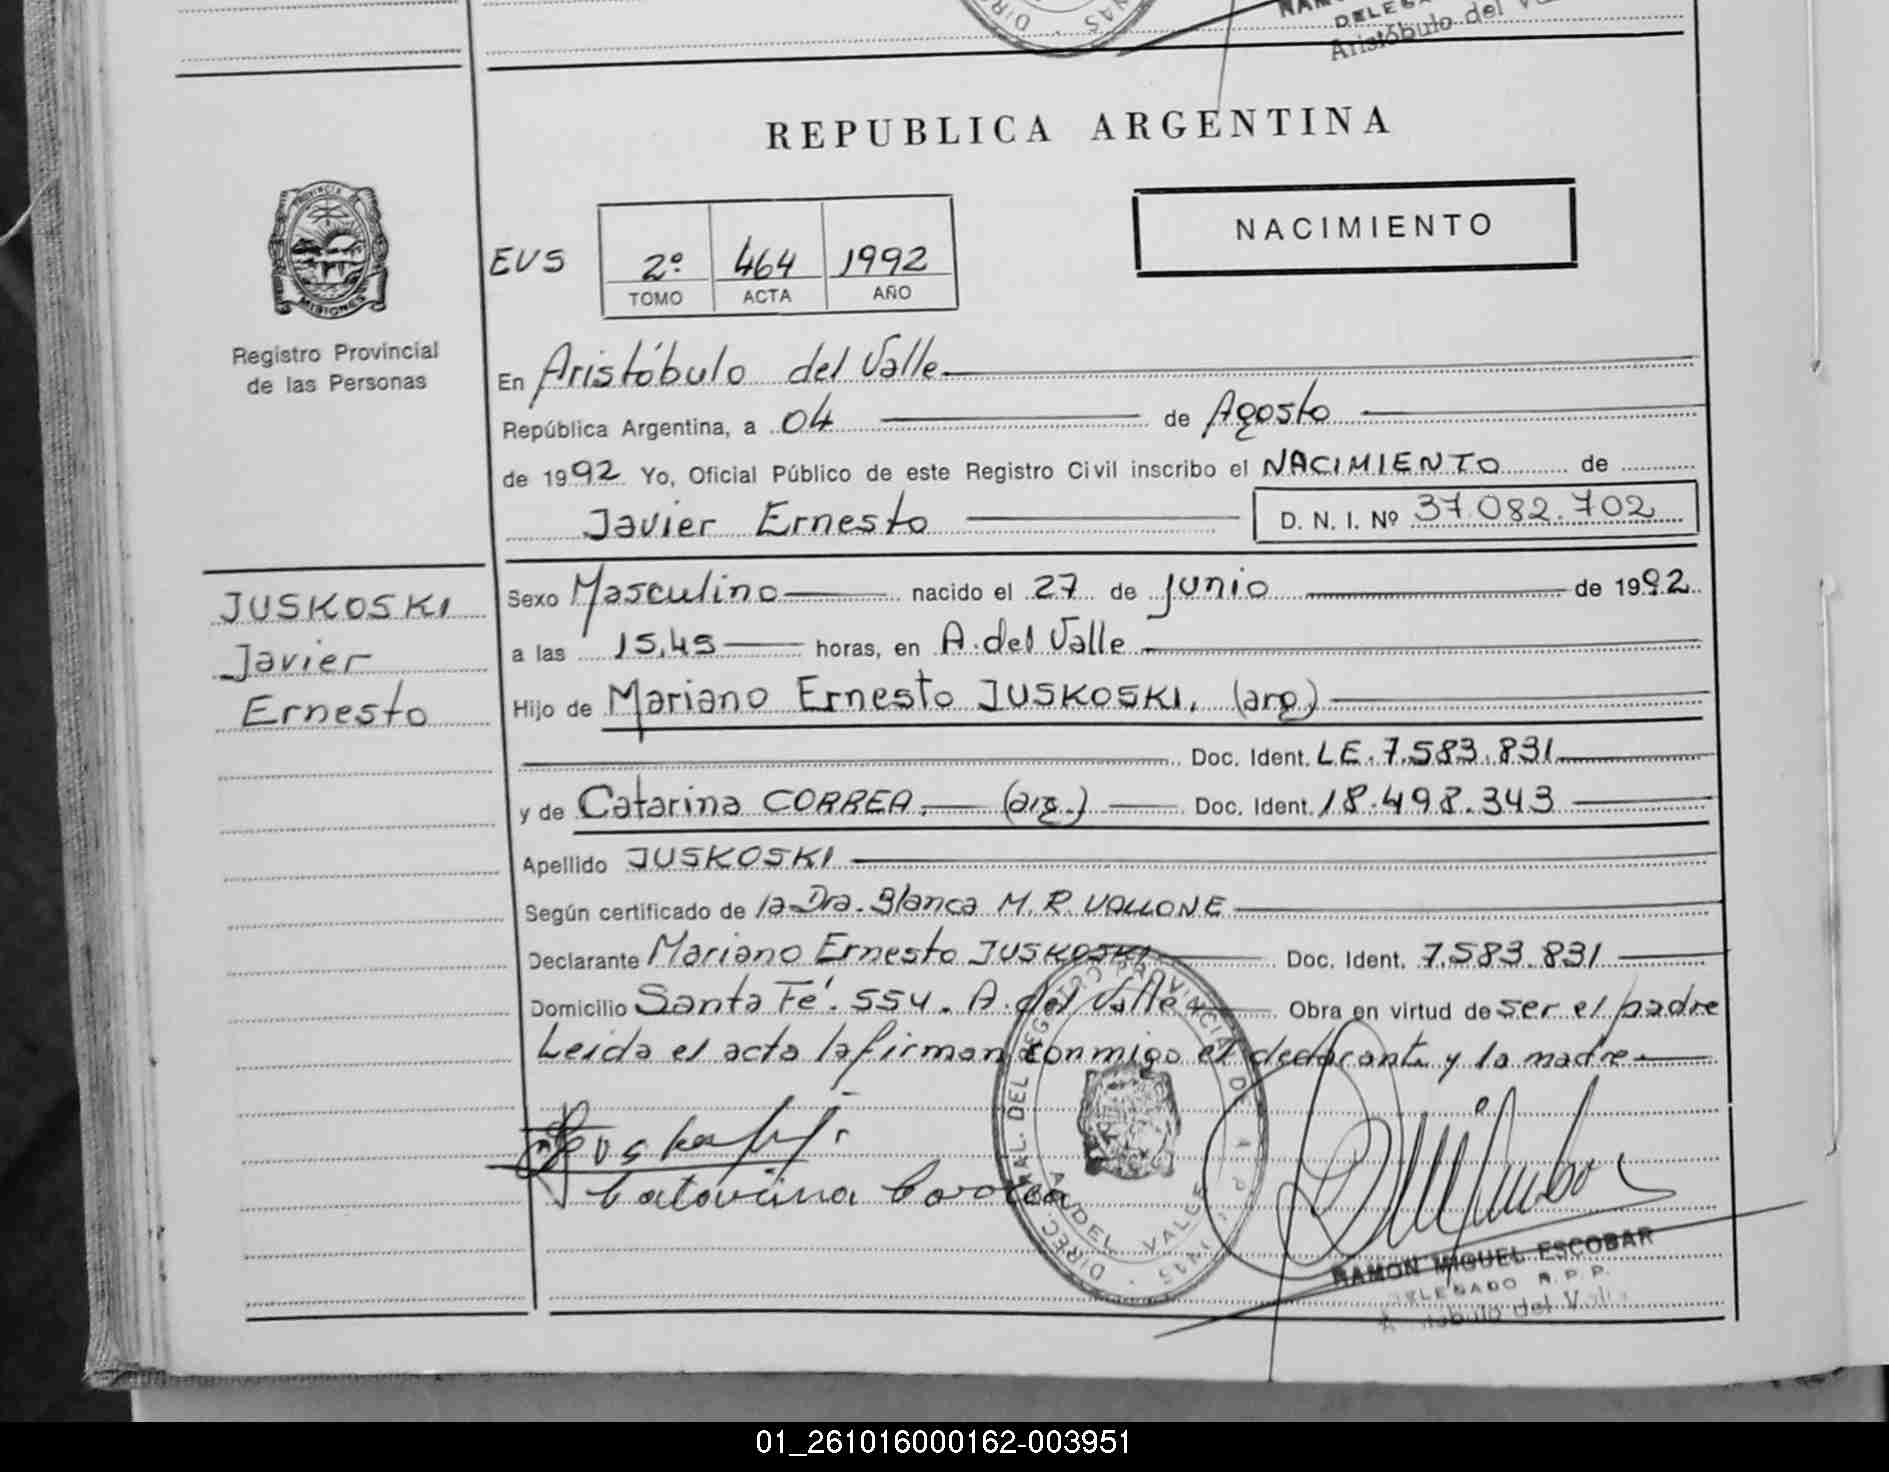 DELEGA
Aristóbulo del V
REPUBLICA ARGENTINA
NACIMIENTO
EVS 2º 464 1992
TOMO ACTA AÑO
PROVINCIA DE
MISIONES
Registro Provincial
de las Personas
En Aristóbulo del Valle
República Argentina, a 04 de Agosto
de 1992 Yo, Oficial Público de este Registro Civil inscribo el NACIMIENTO de
Javier Ernesto D. N. I. Nº 37.082.702
JUSKOSKI
Javier
Ernesto
Sexo Masculino nacido el 27 de junio de 1992
a las 15,45 horas, en A. del Valle
Hijo de Mariano Ernesto JUSKOSKI. (arg.)
Doc. Ident. L.E. 7.583.831
y de Catarina CORREA. (arg.) Doc. Ident. 18.498.343
Apellido JUSKOSKI
Según certificado de la Dra. Blanca M. R. VALLONE
Declarante Mariano Ernesto JUSKOSKI Doc. Ident. 7.583.831
Domicilio Santa Fé. 554. A. del Valle Obra en virtud de ser el padre
Leida el acta la firman conmigo el declarante y la madre
Catarina Correa
DIREC. GRAL. DEL REGISTRO PROVINCIAL DE LAS P
A. DEL VALLE
RAMON MIGUEL ESCOBAR
DELEGADO R.P.P.
Aristóbulo del Valle
01_261016000162-003951